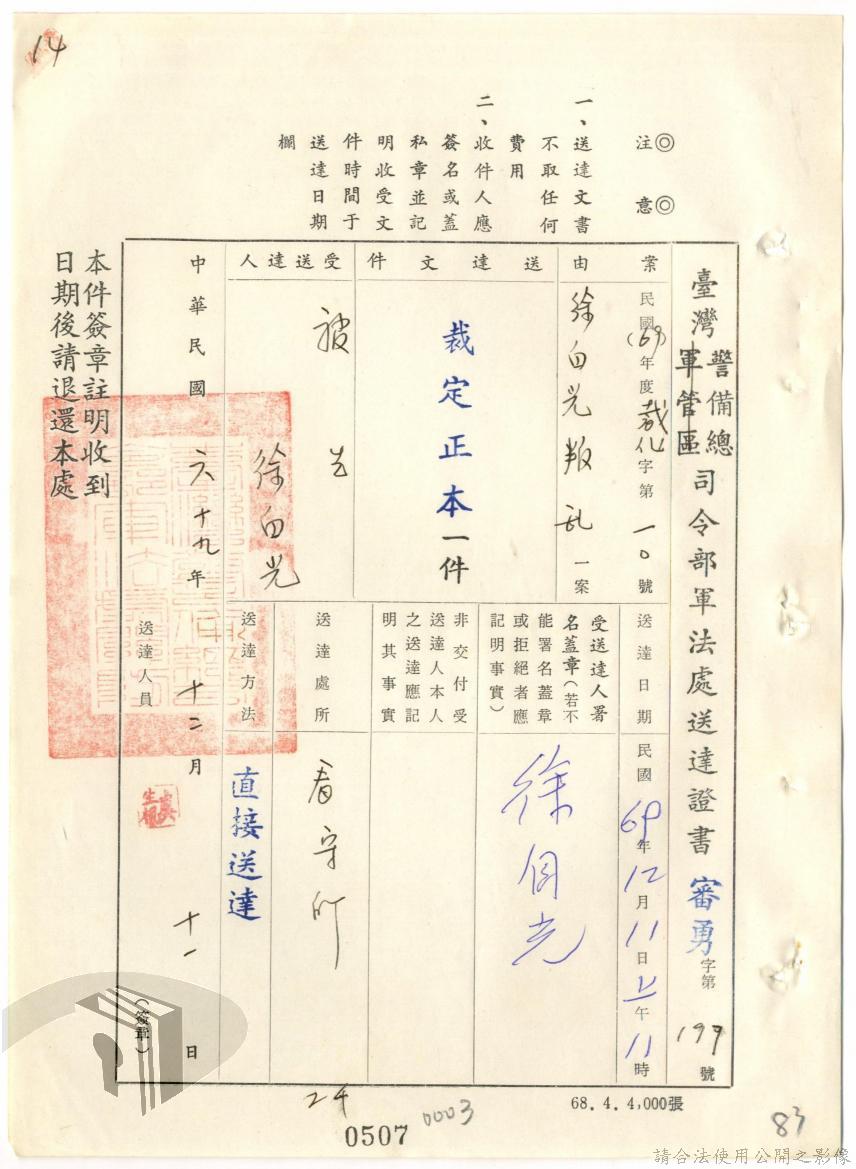 14
◎注意◎
一、送達文書
不取任何
費用
二、收件人應
簽名或蓋
私章並記
明收受文
件時間于
送達日期
欄
臺灣警備總軍管區司令部軍法處送達證書 審勇字第199號
案由
民國(69)年度裁化字第一0號
徐自光叛乱一案
送達文件
裁定正本一件
受送達人
被告
徐自光
送達日期
民國69年12月11日上午11時
受送達人署
名蓋章(若不
能署名蓋章
或拒絕者應
記明事實)
徐自光
非交付受
送達人本人
之送達應記
明其事實
送達處所
看守所
送達方法
直接送達
中華民國六十九年十二月十一日
送達人員
(簽章)
本件簽章註明收到
日期後請退還本處
24
0507
0003
68.4.4,000張
83
請合法使用公開之影像